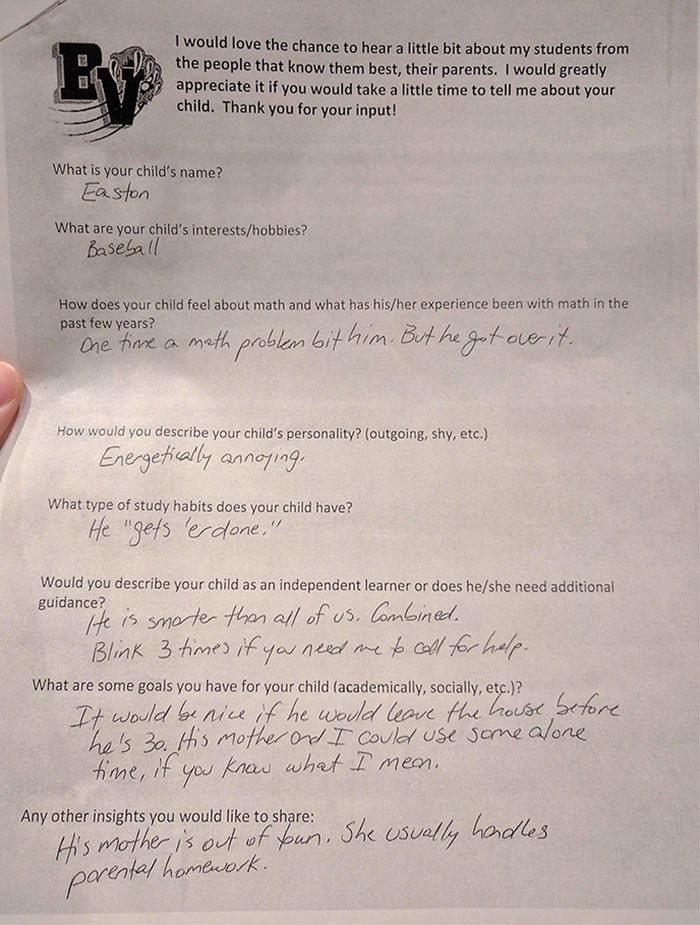 BV
I would love the chance to hear a little bit about my students from
the people that know them best, their parents.  I would greatly
appreciate it if you would take a little time to tell me about your
child.  Thank you for your input!
What is your child's name?
Easton
What are your child's interests/hobbies?
Baseball
How does your child feel about math and what has his/her experience been with math in the
past few years?
One time a math problem bit him. But he got over it.
How would you describe your child's personality? (outgoing, shy, etc.)
Energetically annoying.
What type of study habits does your child have?
He "gets 'er done."
Would you describe your child as an independent learner or does he/she need additional
guidance?
He is smarter than all of us. Combined.
Blink 3 times if you need me to call for help.
What are some goals you have for your child (academically, socially, etc.)?
It would be nice if he would leave the house before
he's 30. His mother and I could use some alone
time, if you know what I mean.
Any other insights you would like to share:
His mother is out of town. She usually handles
parental homework.